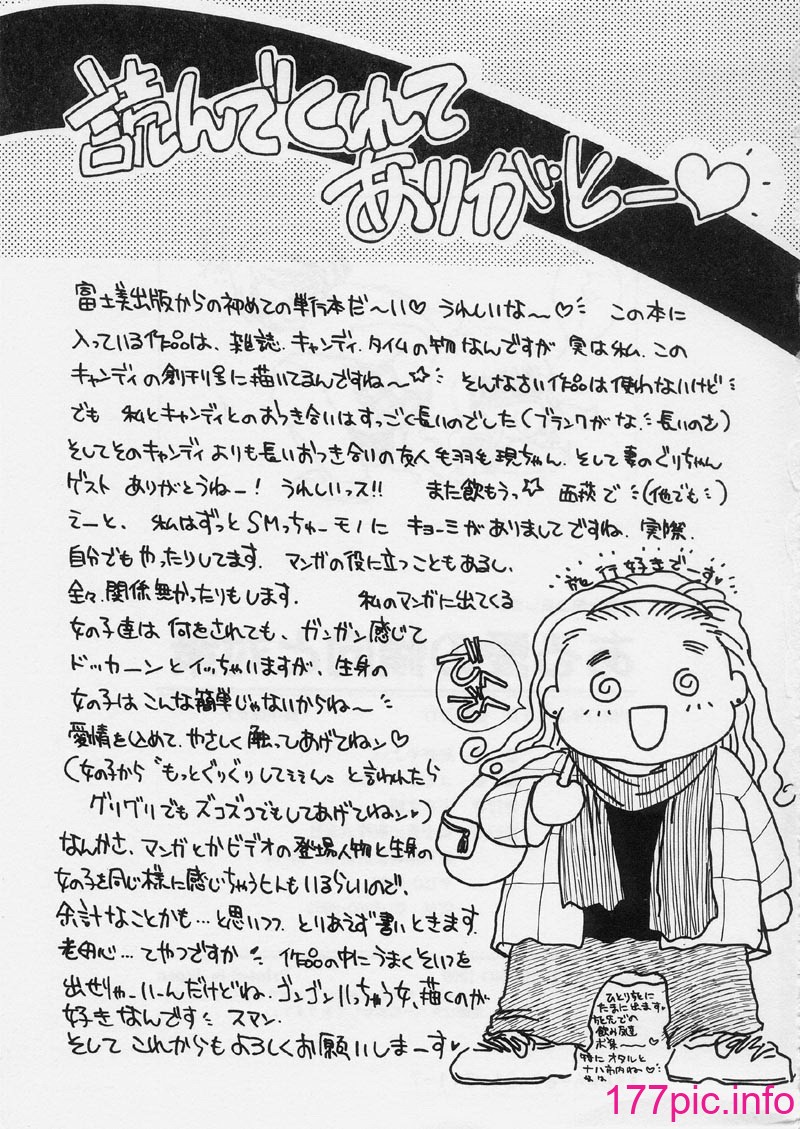 読んでくれて
ありがとー♡
富士美出版からの初めての単行本だ〜い♡ うれしいな〜♡ この本に
入っている作品は、雑誌.キャンディ.タイムの物なんですが 実は私.この
キャンディの創刊号に描いてるんですね〜☆ そんな古い作品は使わないけど
でも 私とキャンディとのおつき合いはすっごく長いのでした(ブランクがな.長いのさ)
そしてそのキャンディよりも長いおつき合いの友人 毛羽毛現ちゃん.そして妻のぐりちゃん
ゲスト ありがとうねー! うれしいっス!! また飲もうっ☆ 西荻で(他でも)
えーと、私はずっとSMっちゅーモノに キョーミがありましてですね.実際.
自分でもやったりしてます.マンガの役に立つこともあるし、
全々.関係無かったりもします. 私のマンガに出てくる
女の子達は 何をされても、ガンガン感じて
ドッカーンとイッちゃいますが、生身の
女の子はこんな簡単じゃないからね〜
愛情を込めて.やさしく触ってあげてねン♡
(女の子から〝もっとぐりぐりして〟と言われたら
グリグリでもズコズコでもしてあげてねン♡)
なんかさ、マンガとかビデオの登場人物と生身の
女の子を同じ様に感じちゃうヒトもいるらしいので、
余計なことかも…と思いつつ.とりあえず書いときます.
老婆心…てやつですか 作品の中にうまくそいつを
出せりゃーいーんだけどね.ゴンゴンいっちゃう女、描くのが
好きなんです スマン.
そして これからもよろしくお願いしまーす♡
旅行好きでーす♡
ひとりたびに
たまに出ます
飲み友達
特にオタルと
177pic.info